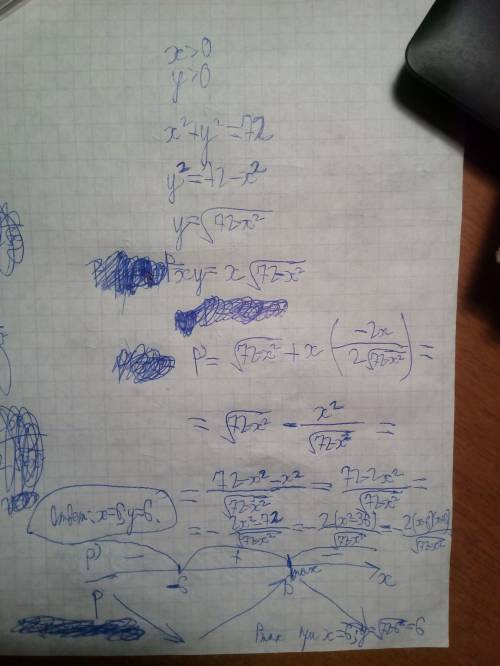 x>0
y>0
x²+y²=72
y²=72-x²
y=√(72-x²)
P=xy=x√(72-x²)
P'=√(72-x²)+x(-2x/(2√(72-x²)))=
=√(72-x²)-x²/√(72-x²)=
=(72-x²-x²)/√(72-x²)=(72-2x²)/√(72-x²)=
=-(2x²-72)/√(72-x²)=-2(x²-36)/√(72-x²)=-2(x-6)(x+6)/√(72-x²)
Ответ: x=6, y=6.
P' - + -
-6 6 max x
P
Pmax при x=6, y=√(72-6²)=6